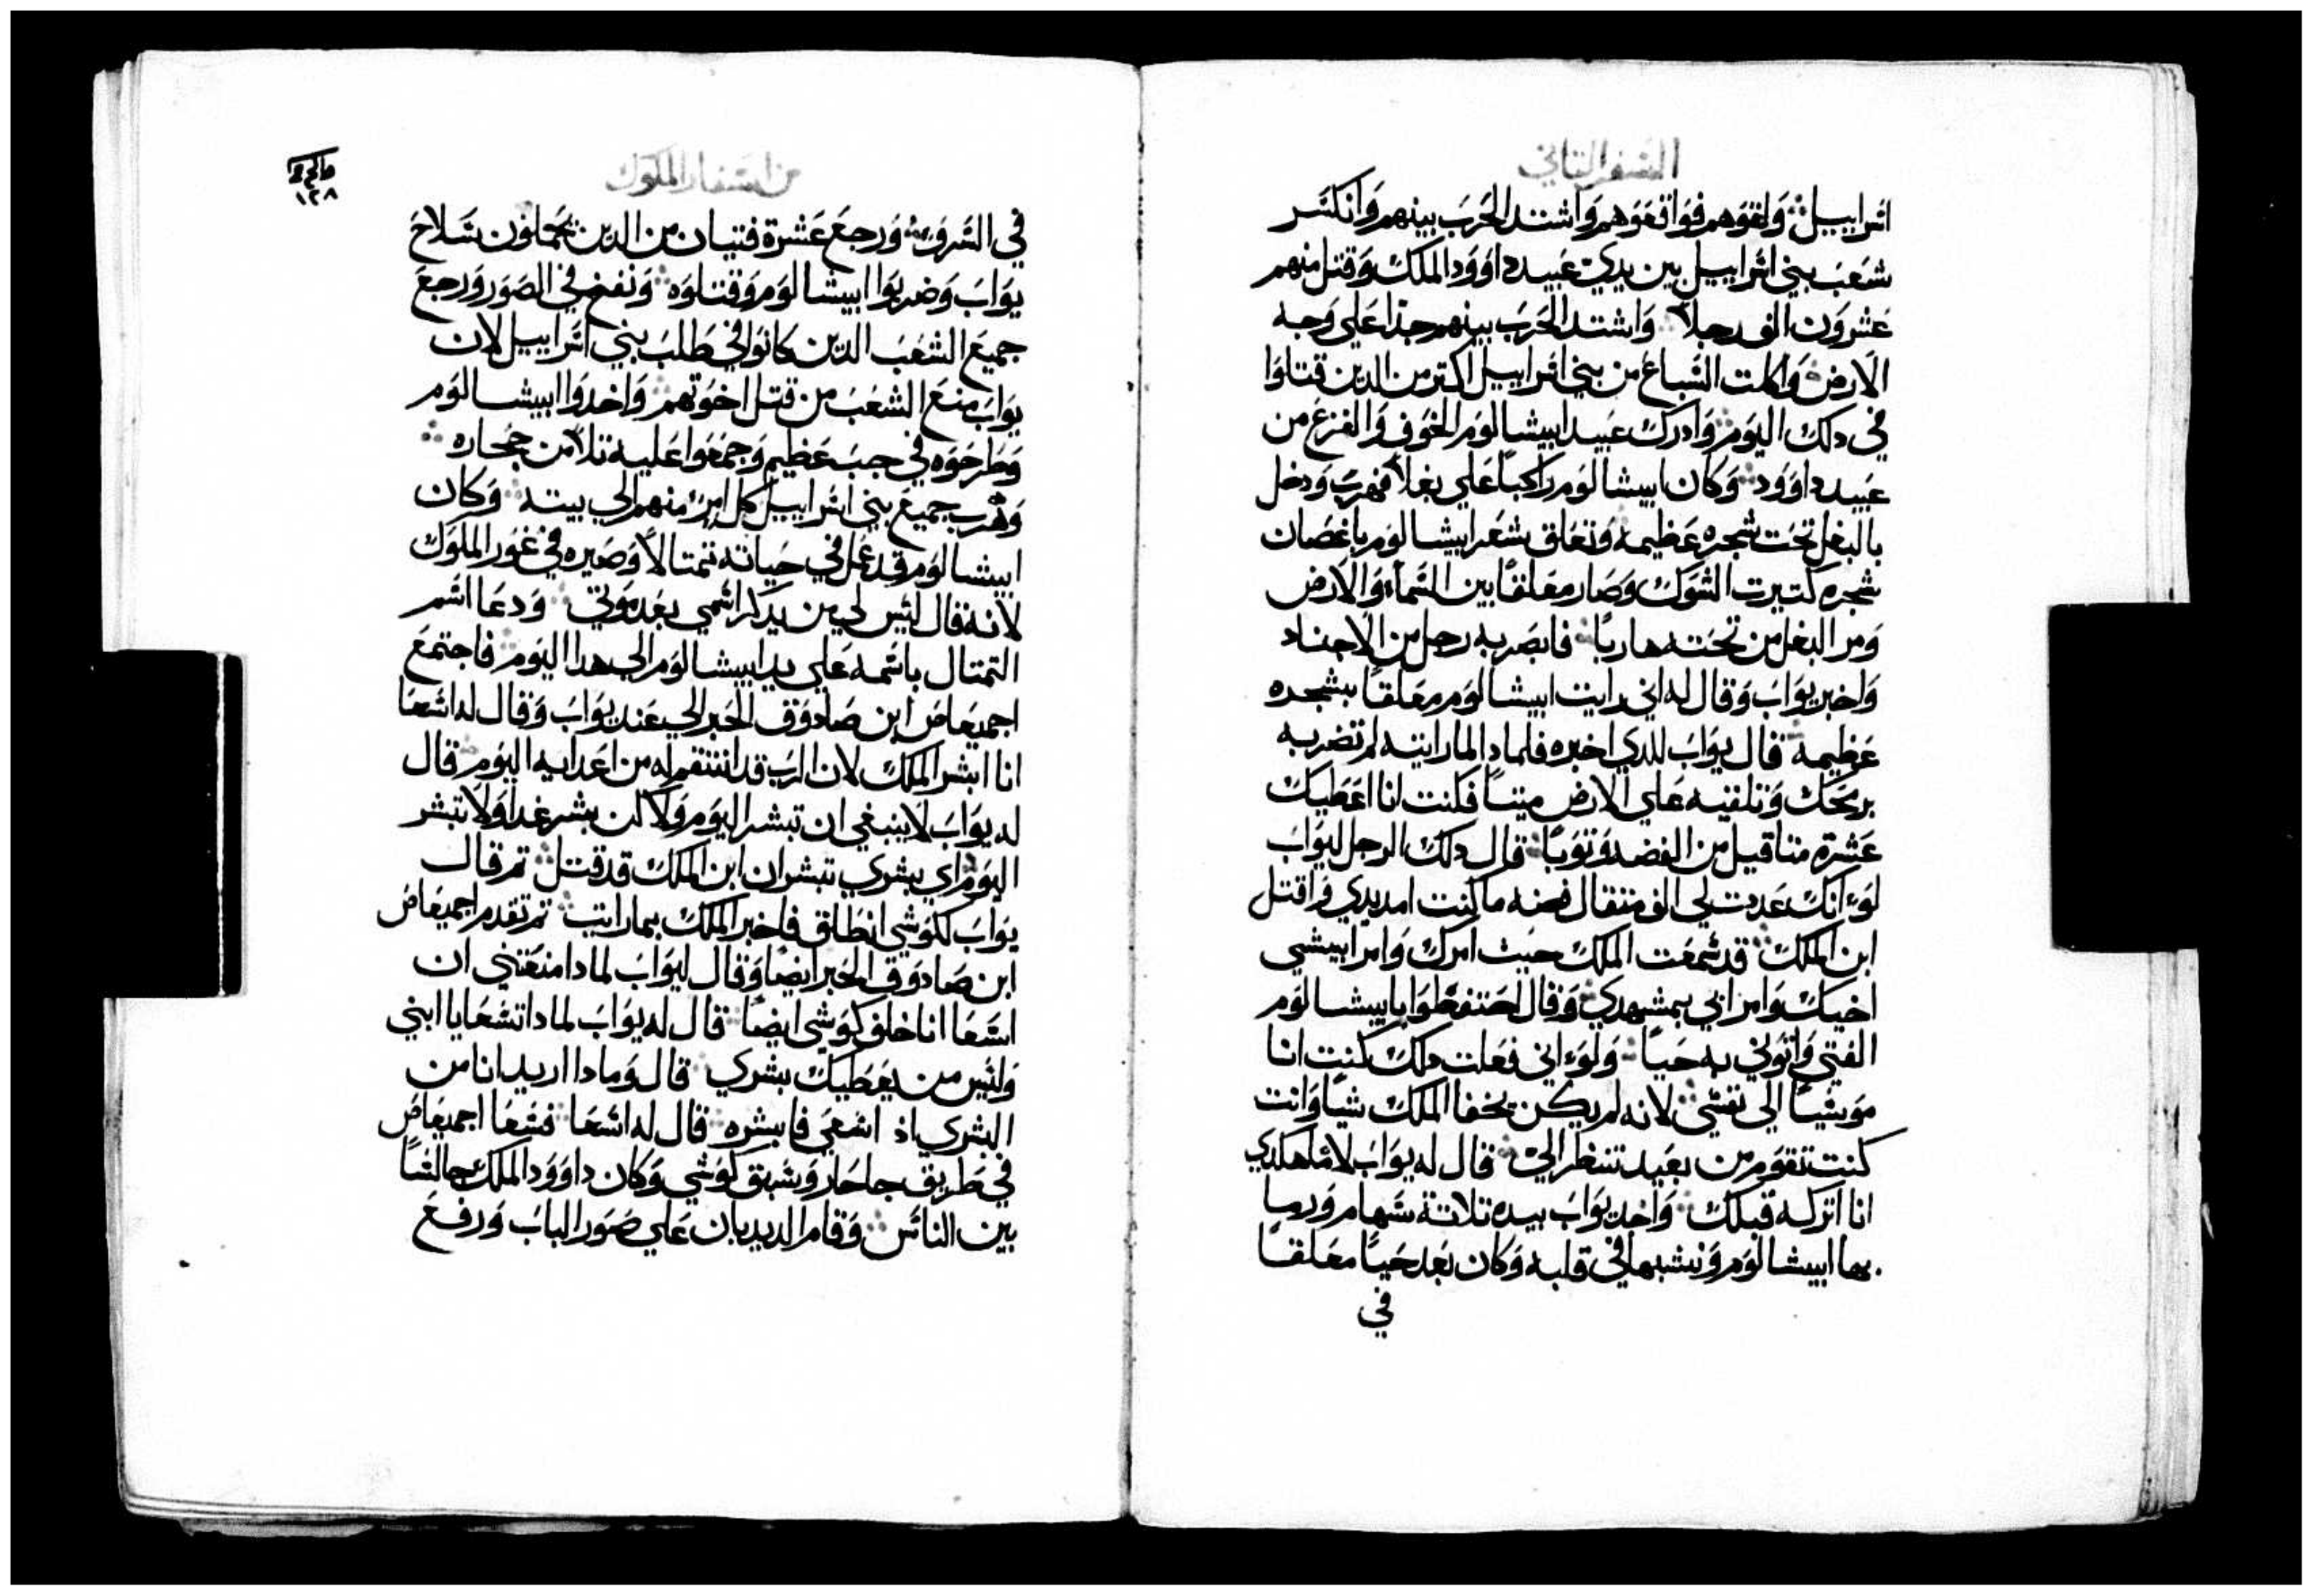 السفر التاني
اسراييل ولقوهم فواقعوهم واشتد الحرب بينهم وانكسر
شعب بني اسراييل بين يدي عبيد داوود الملك وقتل منهم
عشرون الف رجلا واشتد الحرب بينهم جدا علي وجه
الارض واكلت السباع من بني اسراييل اكتر من الدين قتلوا
في دلك اليوم وادرك عبيد ابيشالوم الخوف والفزع من
عبيد داوود وكان ابيشالوم راكبا علي بغلا فهرب ودخل
بالبغل تحت شجره عظيمه وتعلق شعر ابيشالوم باغصان
شجره كتيرت الشوك وصار معلقا بين السماء والارض
ومر البغل من تحته هاربا فابصر به رجل من الاجناد
واخبر يواب وقال له اني رايت ابيشالوم معلقا بشجره
عظيمه قال يواب للدي اخبره فلمادا لما رايته لم تضربه
برمحك وتلقيه علي الارض ميتا فكنت انا اعطيك
عشرة متاقيل من الفضه وتوبا قال دلك الرجل ليواب
لوء انك عددت لي الف متقال فضه ما كنت امد يدي واقتل
ابن الملك قد سمعت الملك حيت امرك وامر ابيشي
اخيك وامر اتي بمشهدي وقال احتفظوا بابيشالوم
الفتي واتوني به حيا ولوء اني فعلت دلك كنت انا
موسيا الي نفسي لانه لم يكن يخفا الملك شيا وانت
كنت تقوم من بعيد تنظر الي قال له يواب لا ما هكدي
انا اتركه قبلك واخد يواب بيده تلاتة سهام ورما
بها ابيشالوم ونشبها في قلبه وكان بعد حيا معلقا
في
من اسفار الملوك
ماخ 2
١٢٨
في السروء ورجع عشرة فتيان من الدين يحملون سلاح
يواب وضربوا ابيشالوم وقتلوه ونفخ في الصور ورجع
جميع الشعب الدين كانوا في طلب بني اسراييل لان
يواب منع الشعب من قتل اخوتهم واخدوا ابيشالوم
وطرحوه في جب عظيم وجمعوا عليه تلا من حجاره
وهرب جميع بني اسراييل كل امرء منهم الي بيته وكان
ابيشالوم قد عمل في حياته تمتالا وصيره في غور الملوك
لانه قال ليس لي من يدكر اسمي بعد موتي ودعا اسم
التمتال باسمه علي يد ابيشالوم الي هدا اليوم فاجتمع
اجميعاص ابن صادوق الحبر الي عند يواب وقال له اسعا
انا ابشر الملك لان الرب قد انتقم له من اعدايه اليوم قال
له يواب لا ينبغي ان تبشر اليوم ولاكن بشر غدا ولا تبشر
اليوم اي بشري تبشر ان ابن الملك قد قتل تم قال
يواب لكوشي انطلق فاخبر الملك بما رايت تم تقدم اجميعاص
ابن صادوق الحبر ايضا وقال ليواب لمادا منعتني ان
اسعا انا خلف كوشي ايضا قال له يواب لمادا تسعا يا ابني
وليس من يعطيك بشري قال وما دا اريد انا من
البشري اد اسعي فابشره قال له اسعا فسعا اجميعاص
في طريق جاحار وسبق كوشي وكان داوود الملك جالسا
بين الناس وقام الديدبان علي صور الباب ورفع